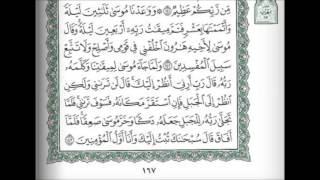 مِّن رَّبِّكُمْ عَظِيمٌ ۝ وَوَٰعَدْنَا مُوسَىٰ ثَلَٰثِينَ لَيْلَةً
وَأَتْمَمْنَٰهَا بِعَشْرٍ فَتَمَّ مِيقَٰتُ رَبِّهِۦٓ أَرْبَعِينَ لَيْلَةً وَقَالَ
مُوسَىٰ لِأَخِيهِ هَٰرُونَ ٱخْلُفْنِى فِى قَوْمِى وَأَصْلِحْ وَلَا تَتَّبِعْ
سَبِيلَ ٱلْمُفْسِدِينَ ۝ وَلَمَّا جَآءَ مُوسَىٰ لِمِيقَٰتِنَا وَكَلَّمَهُۥ
رَبُّهُۥ قَالَ رَبِّ أَرِنِىٓ أَنظُرْ إِلَيْكَ قَالَ لَن تَرَىٰنِى وَلَٰكِنِ
ٱنظُرْ إِلَى ٱلْجَبَلِ فَإِنِ ٱسْتَقَرَّ مَكَانَهُۥ فَسَوْفَ تَرَىٰنِى فَلَمَّا
تَجَلَّىٰ رَبُّهُۥ لِلْجَبَلِ جَعَلَهُۥ دَكًّا وَخَرَّ مُوسَىٰ صَعِقًا فَلَمَّآ
أَفَاقَ قَالَ سُبْحَٰنَكَ تُبْتُ إِلَيْكَ وَأَنَا۠ أَوَّلُ ٱلْمُؤْمِنِينَ ۝
١٦٧